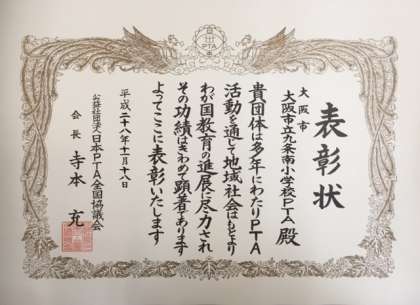 表彰状
大阪市
大阪市立九条南小学校PTA 殿
貴団体は多年にわたりPTA
活動を通じて地域社会はもとより
わが国教育の進展に尽力され
その功績はきわめて顕著であります
よってここに表彰いたします
平成二十八年十一月十八日
公益社団法人日本PTA全国協議会
会長 寺本 充